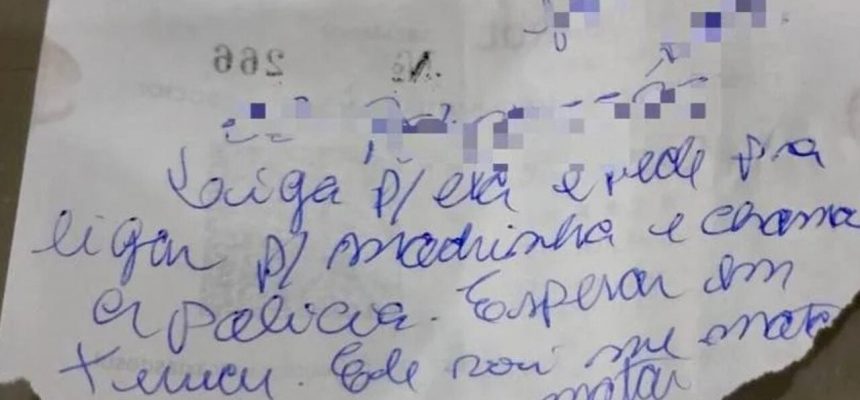 266 №
Liga p/ ela e pede pra
ligar p/ madrinha e chama
a policia. Esperar em
Ele vai me mata
matar